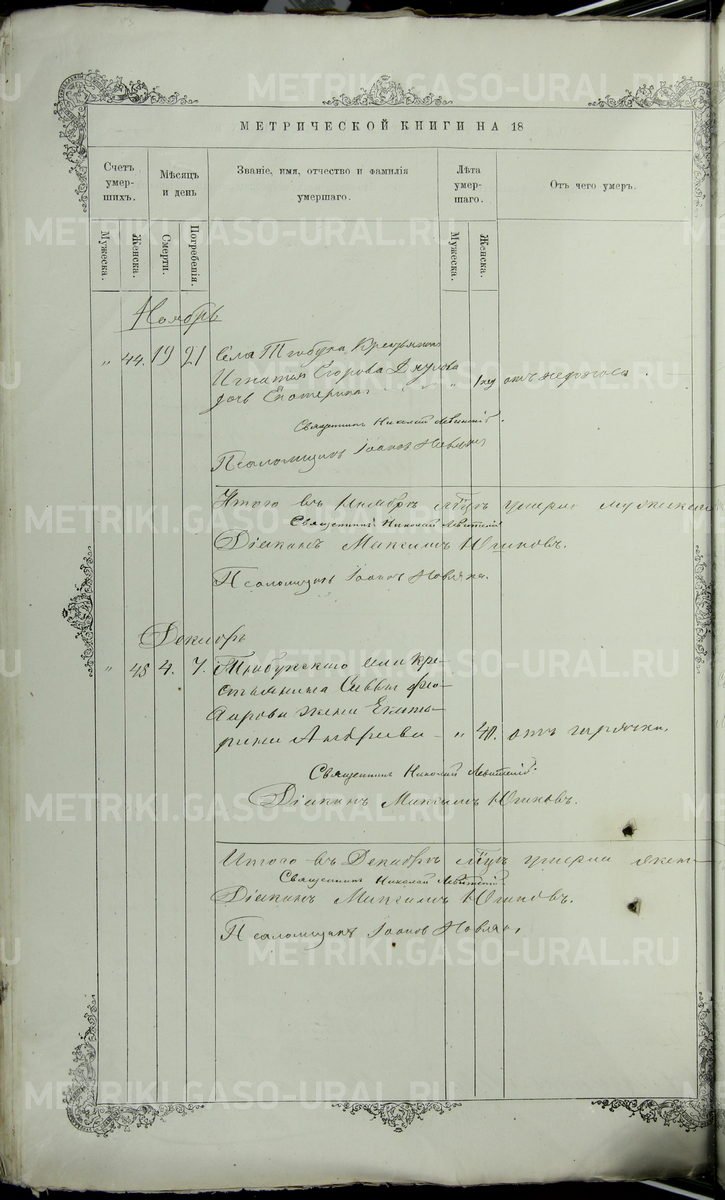 МЕТРИЧЕСКОЙ КНИГИ НА 18
Счетъ умерших.
Мѣсяцъ и день
Званіе, имя, отчество и фамилія умершаго.
Лѣта умершаго.
Отъ чего умеръ.
Мужеска.
Женска.
Смерти.
Погребенія.
Мужеска.
Женска.
Ноябрь
„ 44. 19 21 Села Тюбука крестьянина
Игнатія Егорова
дочь Екатерина „ отъ
Священникъ Николай Левитскій.
Псаломщикъ Іоаннъ
Итого въ Ноябрѣ мѣсяцѣ умерло мужескаго
Священникъ Николай Левитскій
Діаконъ Максимъ Югиковъ.
Псаломщикъ Іоаннъ
Декабрь
„ 45 4. 7. Тюбукскаго села кре-
стьянина Саввы
жена Екате-
рина Андреева „ 40. отъ горячки.
Священникъ Николай Левитскій.
Діаконъ Максимъ Югиковъ.
Итого въ Декабрѣ мѣсяцѣ умерло женс-
Священникъ Николай Левитскій
Діаконъ Максимъ Югиковъ.
Псаломщикъ Іоаннъ
METRIKI.GASO-URAL.RU